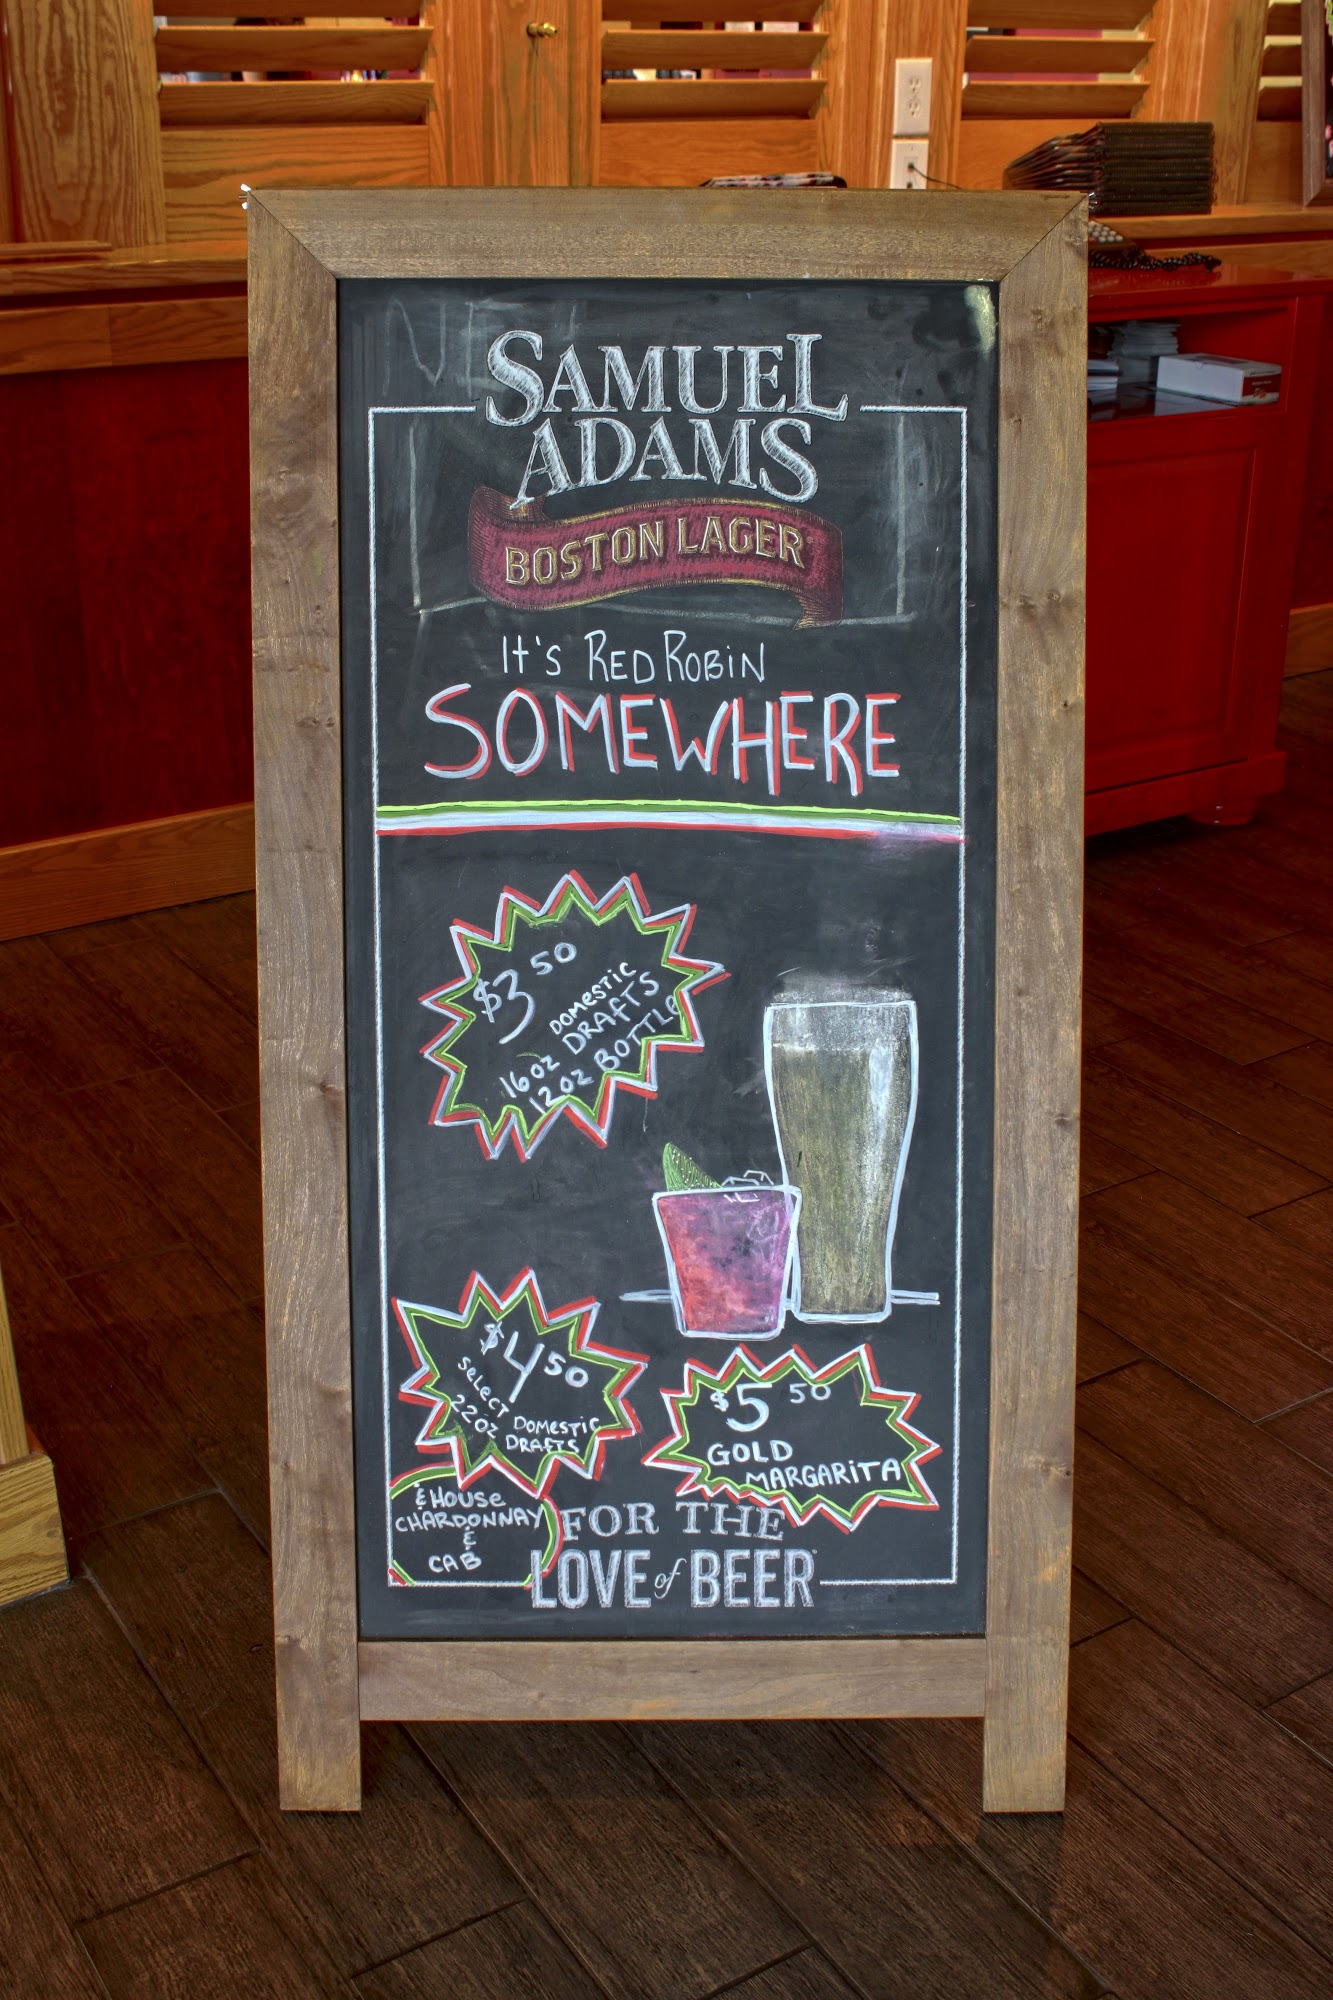 SAMUEL
ADAMS
BOSTON LAGER
IT'S RED ROBIN
SOMEWHERE
$3 50
DOMESTIC
16oz DRAFTS
12oz BOTTLE
$4 50
SELECT
22oz DOMESTIC
DRAFTS
& HOUSE
CHARDONNAY
&
CAB
$5 50
GOLD
MARGARITA
FOR THE
LOVE of BEER